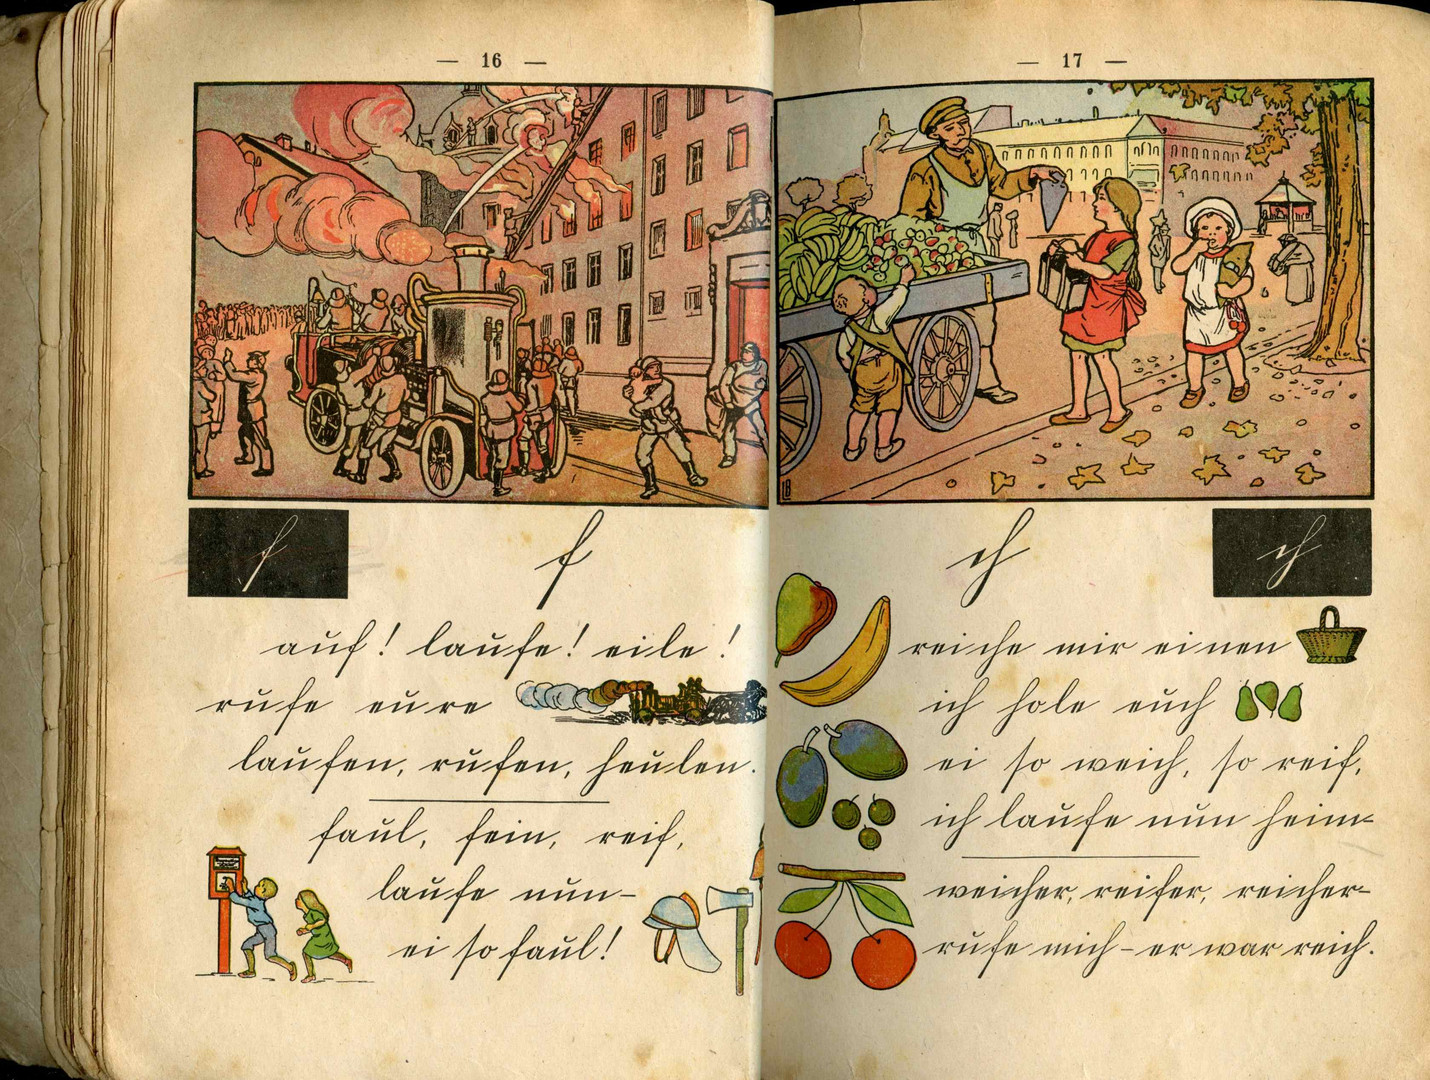 — 16 —
f
f
auf! laufe! eile!
rufe eure
laufen, rufen, heulen.
faul, fein, reif,
laufe nun–
ei so faul!
— 17 —
ch
ch
reiche mir einen
ich hole euch
ei so weich, so reif,
ich laufe nun heim–
weicher, reifer, reicher–
rufe mich – er war reich.